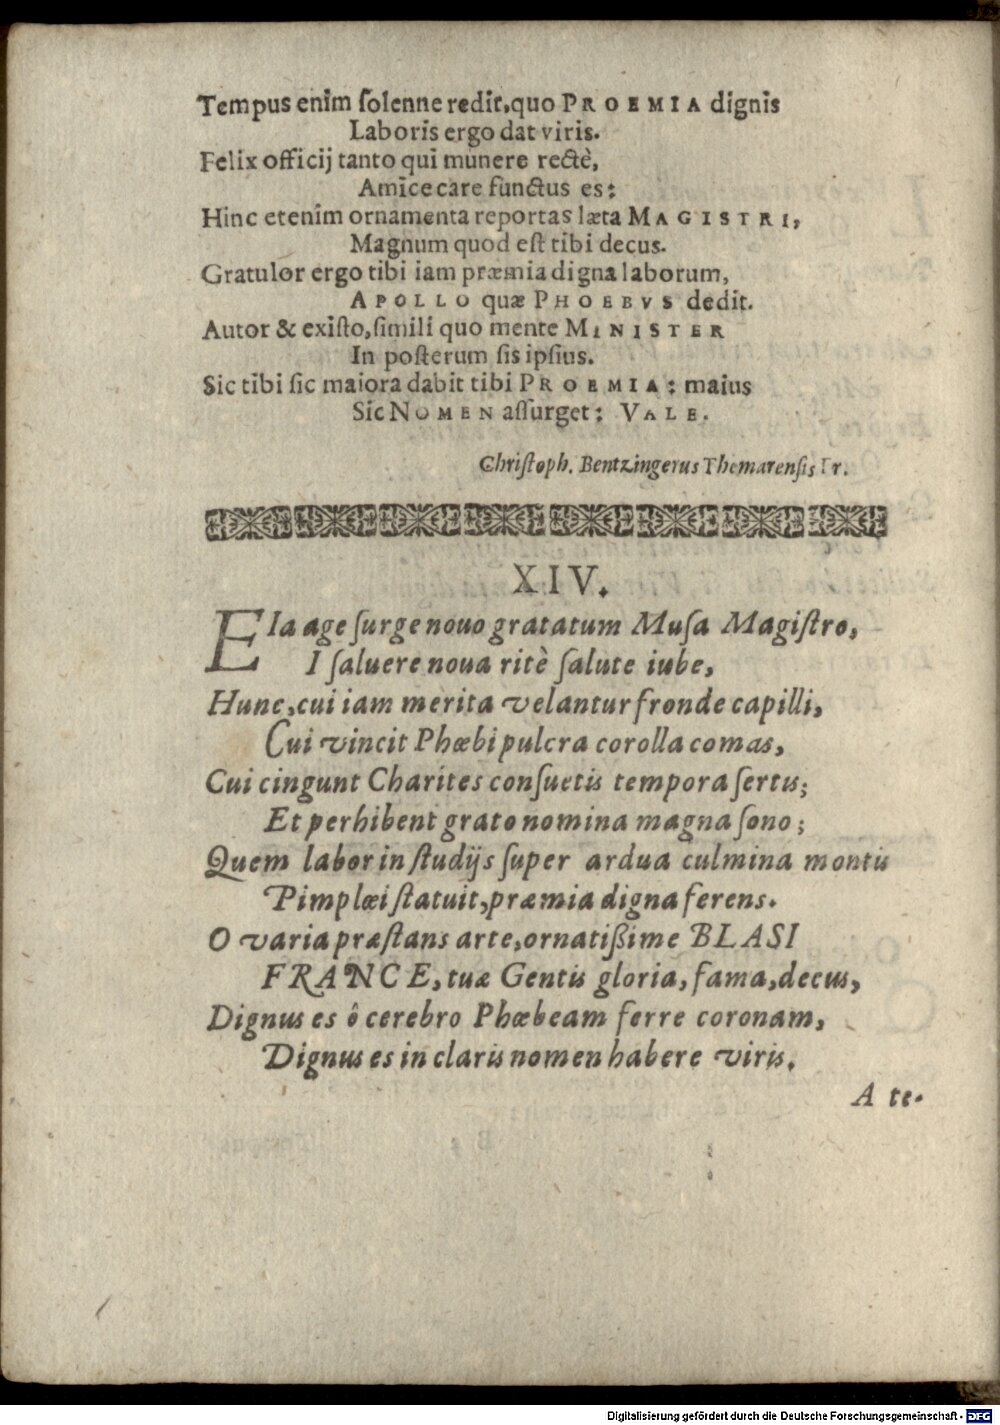 Tempus enim ſolenne redit, quo PROEMIA dignis
Laboris ergo dat viris.
Felix officij tanto qui munere rectè,
Amice care functus es:
Hinc etenim ornamenta reportas læta MAGISTRI,
Magnum quod eſt tibi decus.
Gratulor ergo tibi iam præmia digna laborum,
APOLLO quæ PHOEBVS dedit.
Autor & exiſto, ſimili quo mente MINISTER
In poſterum ſis ipſius.
Sic tibi ſic maiora dabit tibi PROEMIA: maius
Sic NOMEN aſſurget: VALE.
Chriſtoph. Bentzingerus Themarensis Fr.
XIV.
EIa age ſurge nouo gratatum Muſa Magiſtro,
I ſaluere noua ritè ſalute iube,
Hunc, cui iam merita velantur fronde capilli,
Cui vincit Phœbi pulcra corolla comas,
Cui cingunt Charites conſuetis tempora ſertis;
Et perhibent grato nomina magna ſono;
Quem labor in ſtudijs ſuper ardua culmina montis
Pimplœi ſtatuit, præmia digna ferens.
O varia præſtans arte, ornatiſſime BLASI
FRANCE, tuæ Gentis gloria, fama, decus,
Dignus es ô cerebro Phœbeam ferre coronam,
Dignus es in claris nomen habere viris.
A te.
Digitalisierung gefördert durch die Deutsche Forschungsgemeinschaft - DFG